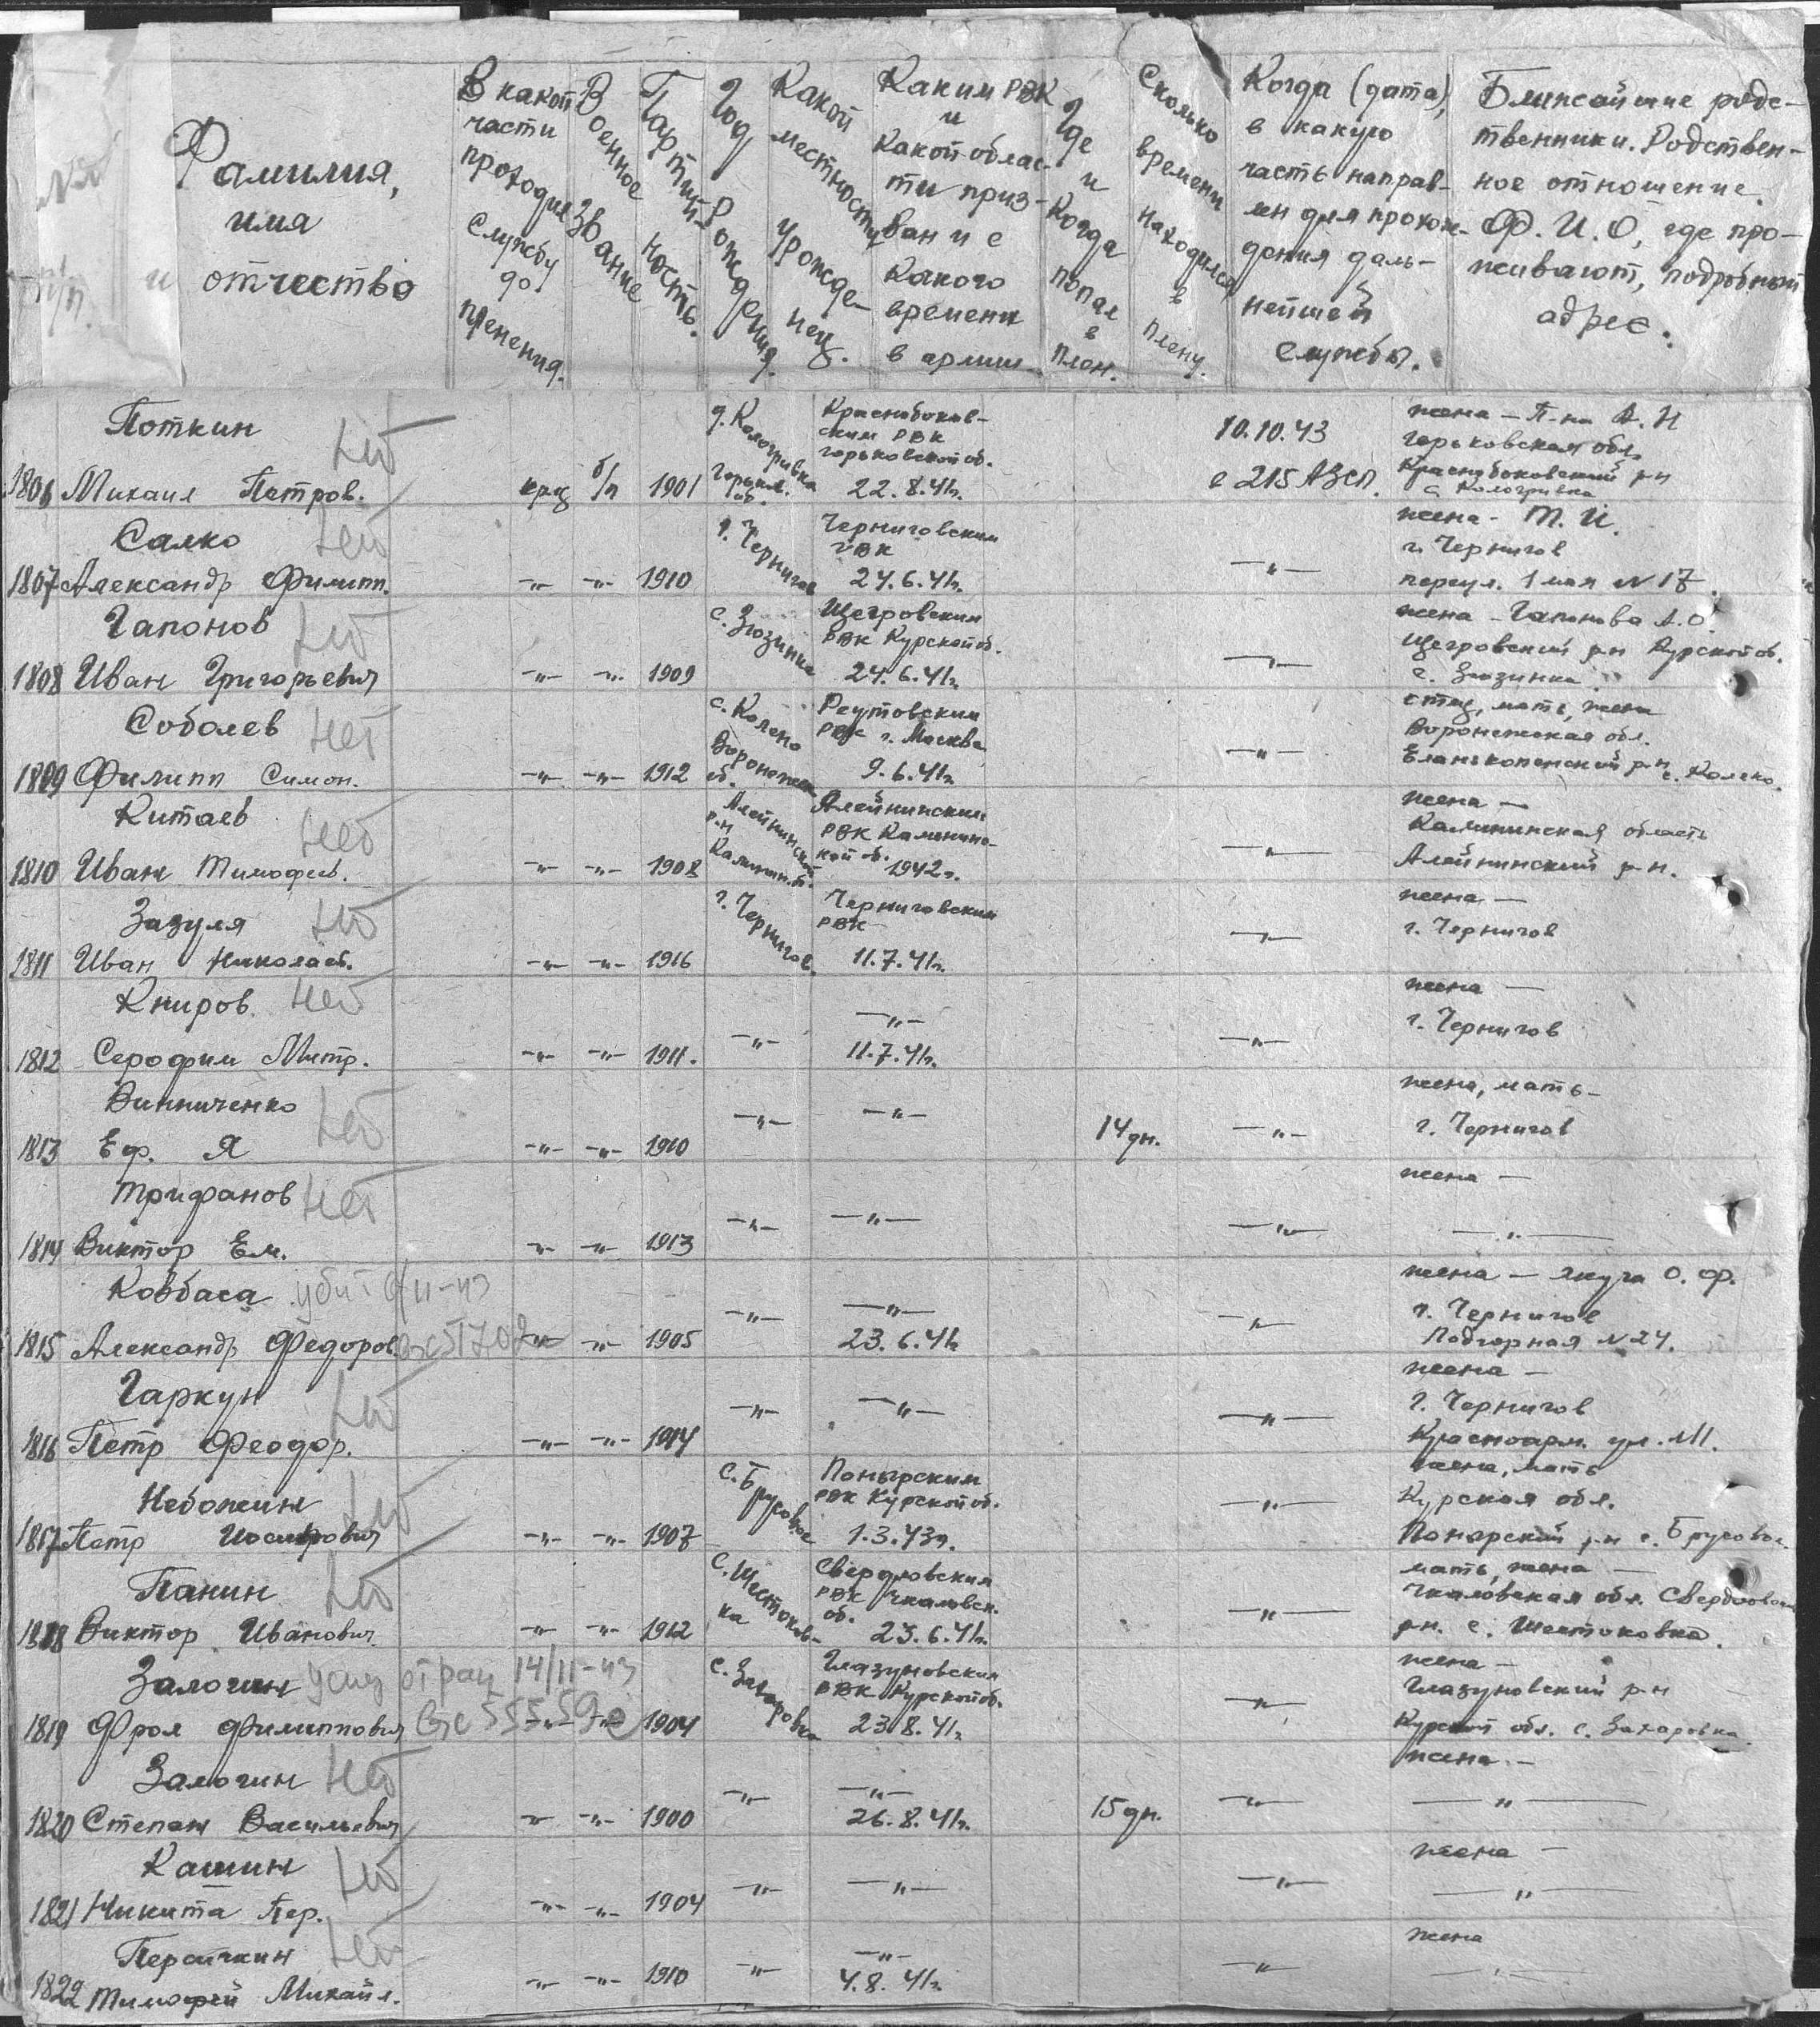 Фамилия,
имя
и отчество
В какой части проходил службу до пленения.
Военное звание
Партийность.
Год рождения.
Какой местности урожденец.
Каким РВК и какой области призван и с какого времени в армии
Где и когда попал в плен.
Сколько времени находился в плену.
Когда (дата), в какую часть направлен для прохождения дальнейшей службы.
Ближайшие родственники. Родственное отношение. Ф.И.О, где проживают, подробный адрес.
1806 Поткин Михаил Петров. нет крц б/п 1901 д. Кологривка Горьк. об. Краснобоковским РВК Горьковской об. 22.8.41г. 10.10.43 в 215 АЗСП. жена – П-на А.Н Горьковская обл. Краснобоковский р-н с. Кологривка
1807 Салко Александр Филипп. нет -"- -"- 1910 г. Чернигов Черниговским ГВК 24.6.41г. -"- жена - Т. И. г. Чернигов переул. 1 мая №17.
1808 Гапонов Иван Григорьевич нет -"- -"- 1909 с. Зюзинка Щегровским РВК Курской об. 24.6.41г. -"- жена - Гапонова А.О. Щегровский р-н Курской об. с. Зюзинка
1809 Соболев Филипп Симон. нет -"- -"- 1912 с. Колено Воронеж об. Реутовским РВК г. Москва 9.6.41г. -"- отец, мать, жена Воронежская обл. Еланькопенский р-н с. Колено.
1810 Китаев Иван Тимофеев. нет -"- -"- 1908 Алейнинский р-н Калинин. об. Алейнинским РВК Калининской об. 1942г. -"- жена – Калининская область Алейнинский р-н.
1811 Зазуля Иван Николаев. нет -"- -"- 1916 г. Чернигов. Черниговским РВК 11.7.41г. -"- жена – г. Чернигов
1812 Книров Серофим Митр. нет -"- -"- 1911. -"- -"- 11.7.41г. -"- жена – г. Чернигов
1813 Винниченко Еф. Я нет -"- -"- 1910 -"- -"- 14 дн. -"- жена, мать – г. Чернигов
1814 Трифанов Виктор Ем. нет -"- -"- 1913 -"- -"- -"- жена – -"-
1815 Ковбаса Александр Федоров. убит 11-43 -"- -"- 1905 -"- -"- 23.6.41г -"- жена – Якута О. Ф. г. Чернигов Подгорная №24.
1816 Гаркун Петр Феодор. нет -"- -"- 1914 -"- -"- -"- жена – г. Чернигов Красноарм. ул.
1817 Небожин Петр Иосифович нет -"- -"- 1907 с. Брусовое Понырским РВК Курской об. 1.3.43г. -"- жена, мать Курская обл. Понырский р-н с. Брусовое
1818 Панин Виктор Иванович. нет -"- -"- 1912 с. Шестоковка Свердловским РВК Чкаловск. об. 23.6.41г. -"- мать, жена – Чкаловская обл. Свердловский р-н. с. Шестоковка.
1819 Залогин Фрол Филиппович от ран 14/11-43 вс 55559с -"- -"- 1904 с. Захаровка Глазуновским РВК Курской об. 23.8.41г -"- жена – Глазуновский р-н Курской обл. с. Захаровка
1820 Залогин Степан Васильевич нет -"- -"- 1900 -"- -"- 26.8.41г. 15 дн. -"- жена – -"-
1821 Кашин Никита Пер. нет -"- -"- 1904 -"- -"- -"- жена – -"-
1822 Тимофей Михайл. нет -"- -"- 1910 -"- -"- 4.8.41г. -"- жена -"-